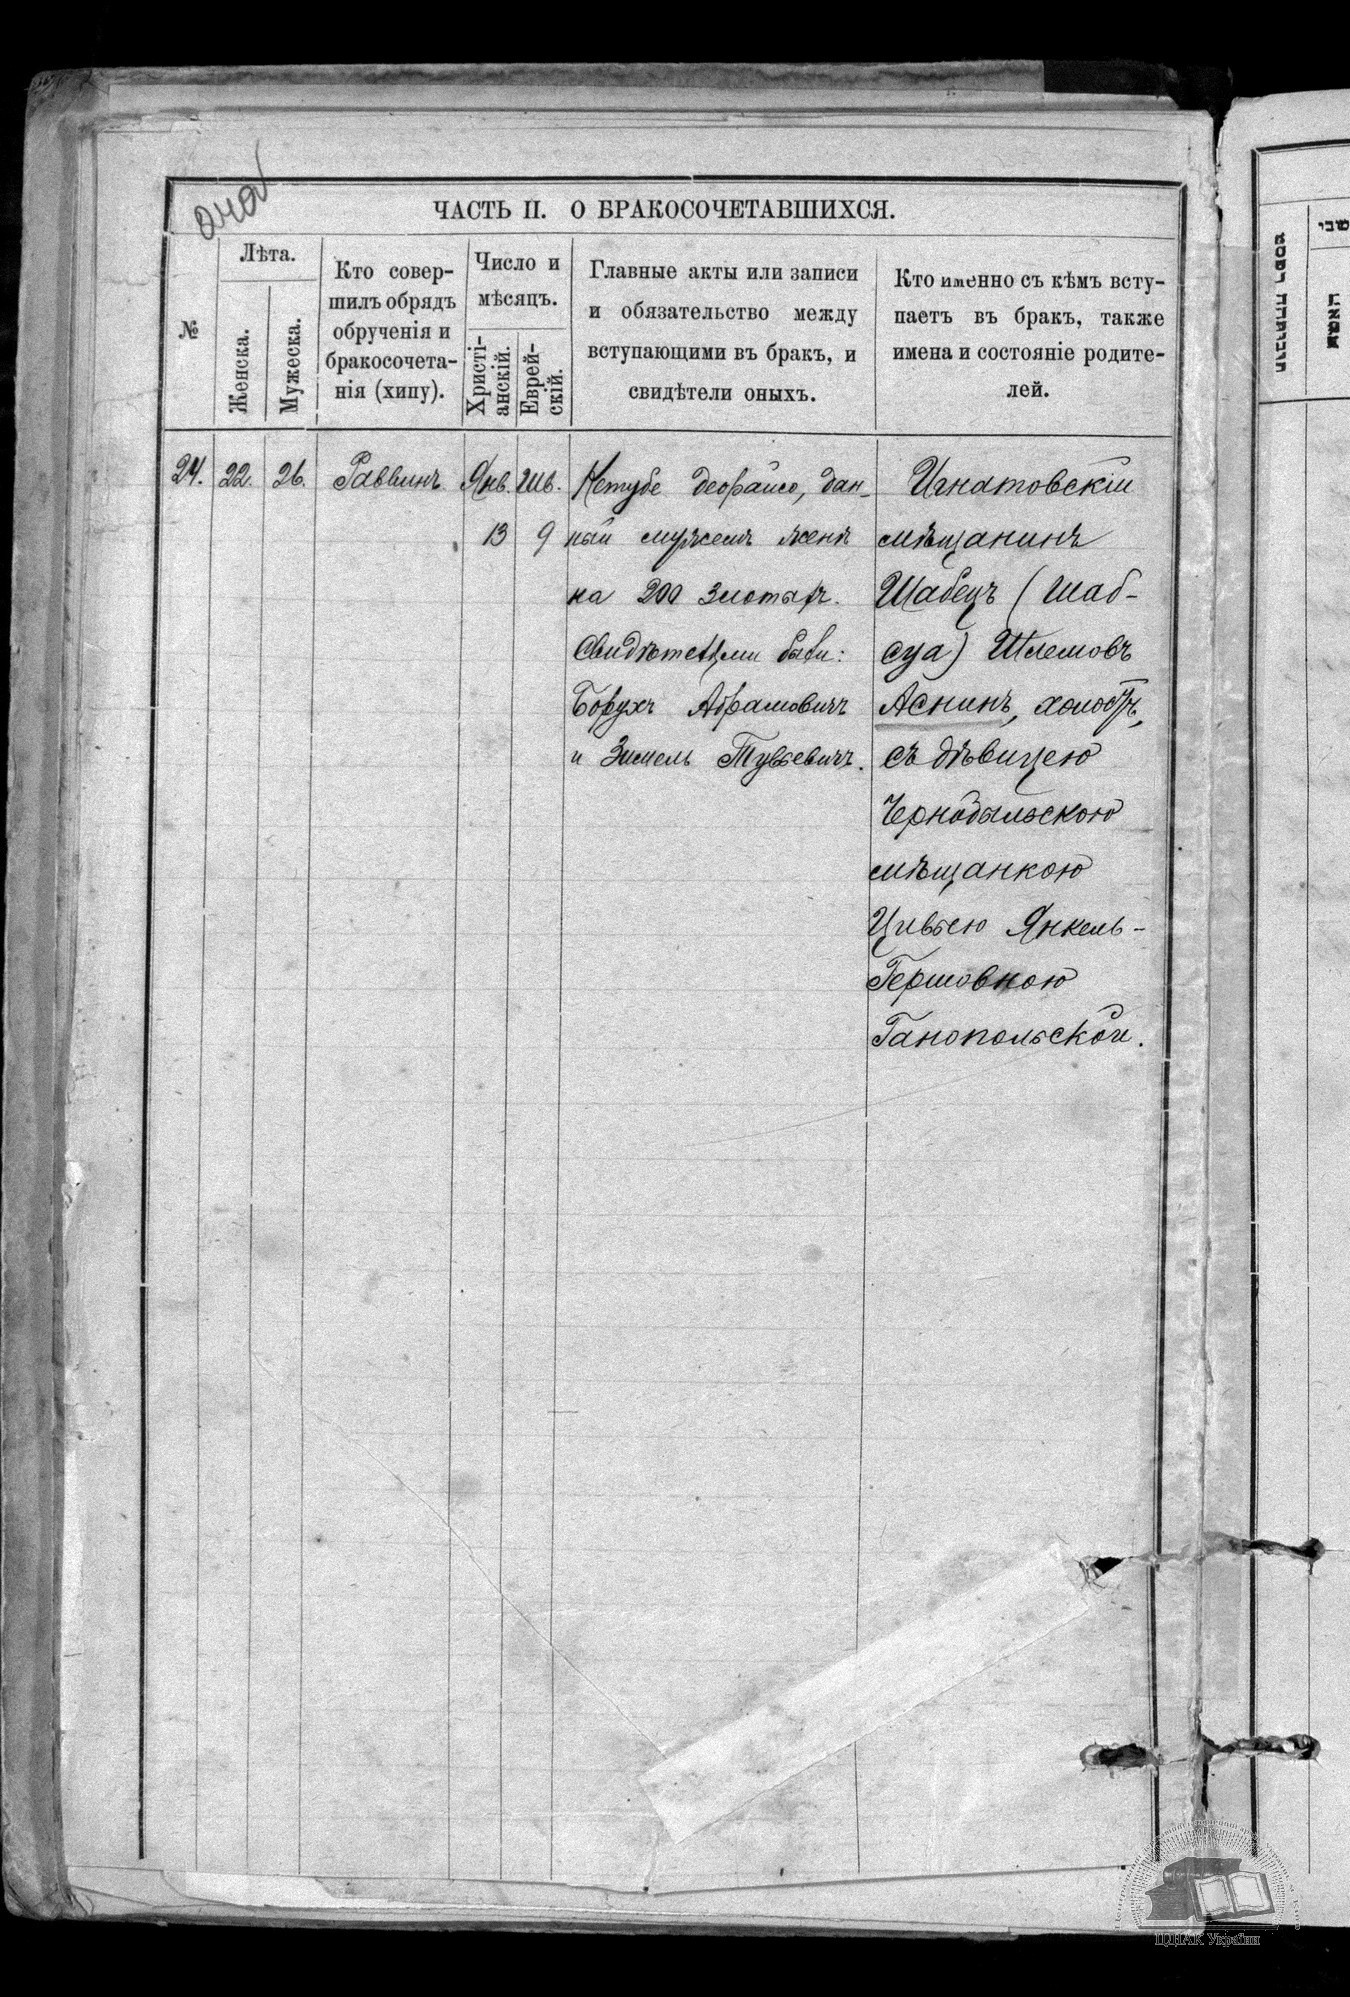 ЧАСТЬ II. О БРАКОСОЧЕТАВШИХСЯ.
№
Лѣта.
Женска.
Мужеска.
Кто совер-
шилъ обрядъ
обрученія и
бракосочета-
нія (хипу).
Число и
мѣсяцъ.
Христі-
анскій.
Еврей-
скій.
Главные акты или записи
и обязательство между
вступающими въ бракъ, и
свидѣтели оныхъ.
Кто именно съ кѣмъ всту-
паетъ въ бракъ, также
имена и состояніе родите-
лей.
24.
22.
26.
Раввинъ
Янв.
13
Шв.
9
Кетубе деорайсо, дан-
ный мужемъ женѣ
на 200 злотыхъ.
Свидѣтелями были:
Борухъ Абрамовичъ
и Зимель Тувьевичъ.
Игнатовскій
мѣщанинъ
Шабецъ (Шаб-
суа) Шлемовъ
Аснинъ, холостъ,
съ дѣвицею
Чернобыльскою
мѣщанкою
Цивьею Янкель-
Гершовною
Ганопольской.
ЦДІАК України